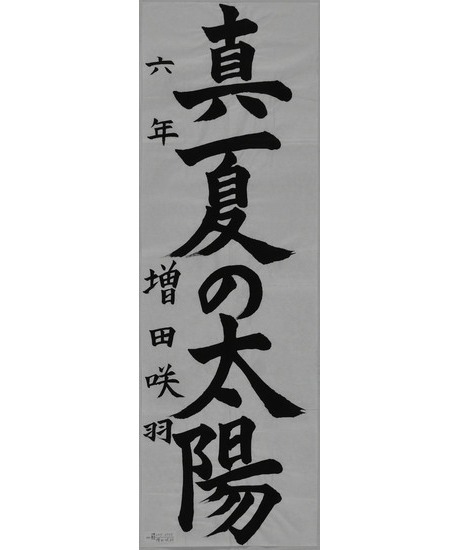 真夏の太陽
六年 増田咲羽